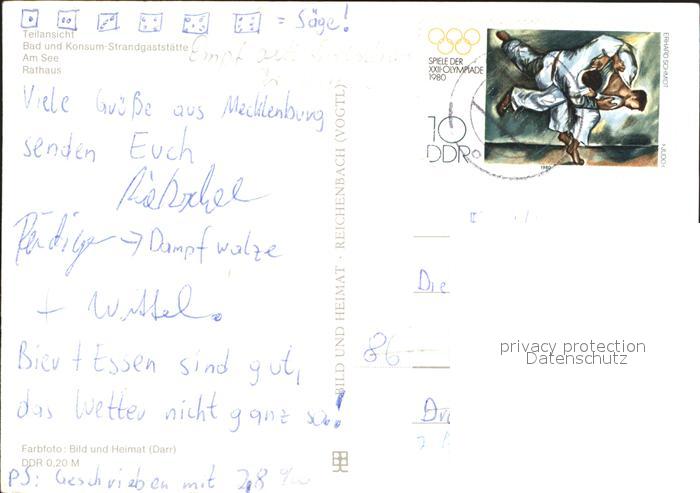 = Säge!
Teilansicht
Bad und Konsum-Strandgaststätte
Am See
Rathaus
Viele Grüße aus Mecklenburg
senden Euch
Rüdiger → Dampfwalze
+
Bier + Essen sind gut,
das Wetter nicht ganz so!
Farbfoto: Bild und Heimat (Darr)
DDR 0,20 M
PS: Geschrieben mit 2,8 ‰
BILD UND HEIMAT · REICHENBACH (VOGTL)
SPIELE DER
XXII. OLYMPIADE
1980
10
DDR
1980
ERHARD SCHMIDT
Die
86
privacy protection
Datenschutz